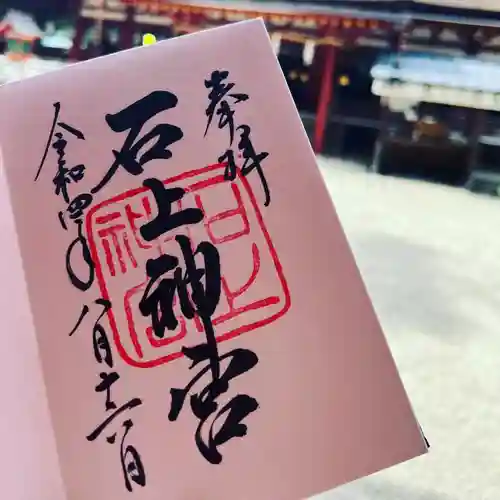 奉拝
石上神宮
令和四年八月十六日
石上
神宮